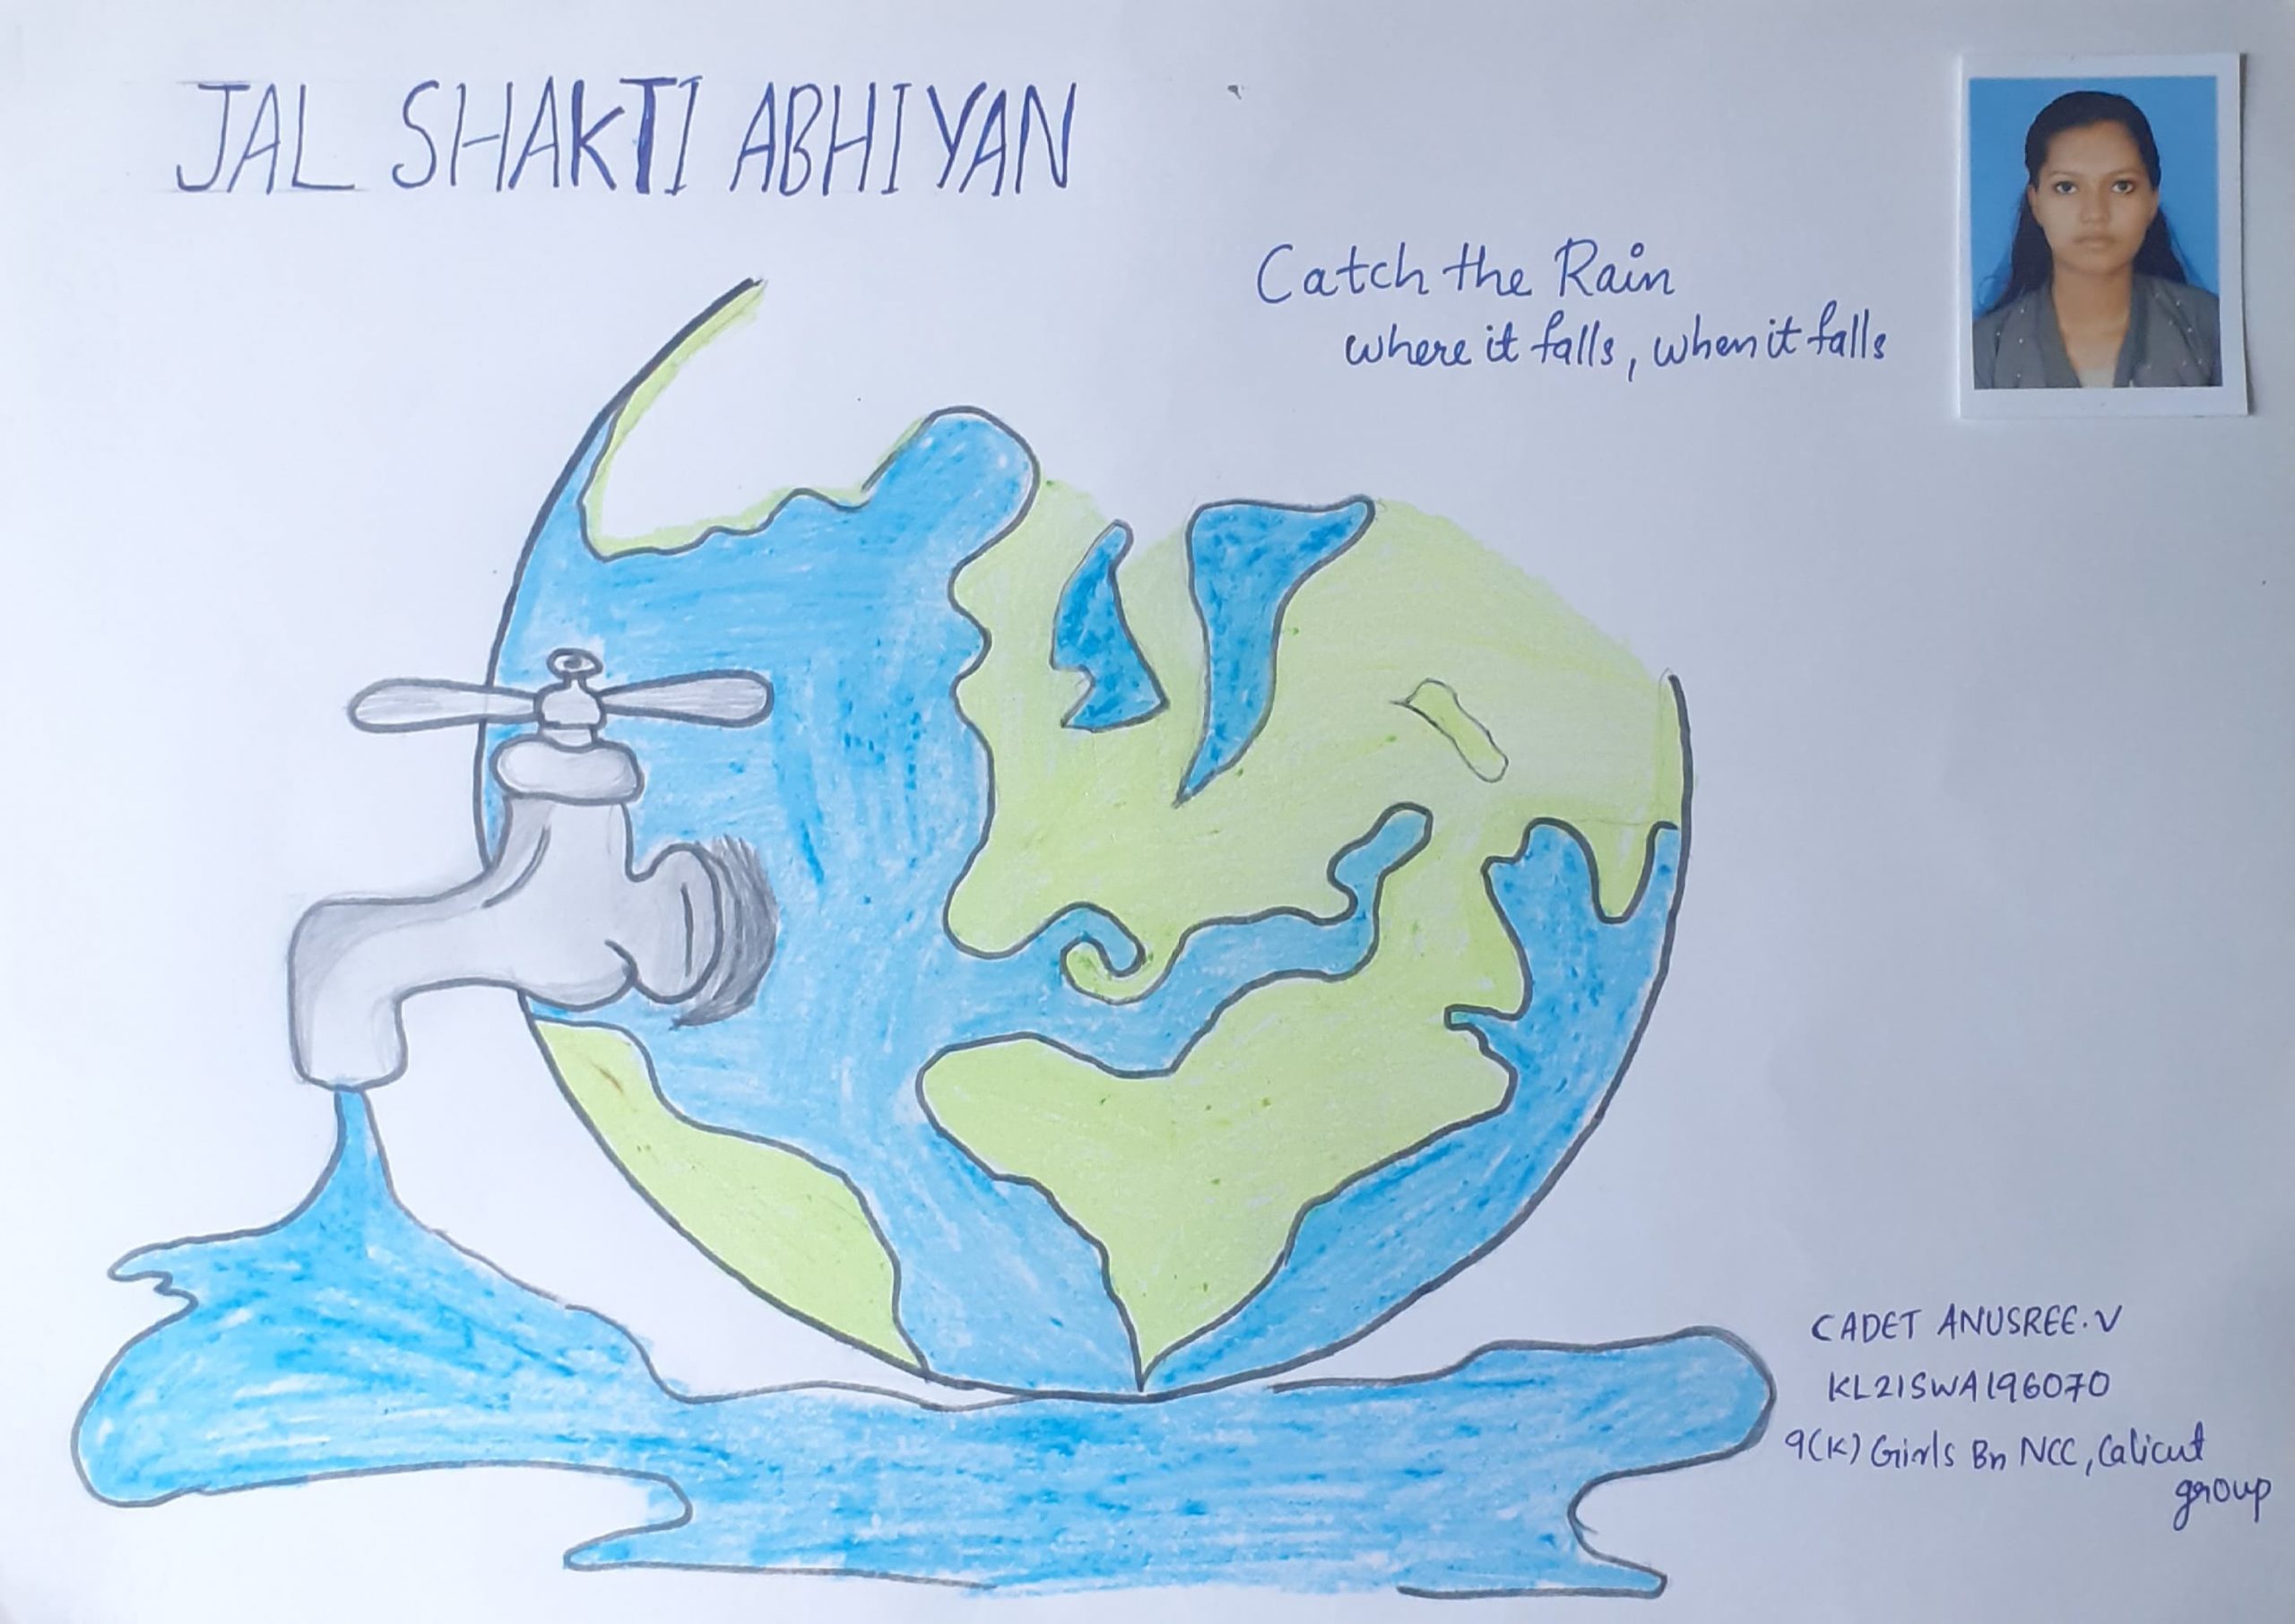 JAL SHAKTI ABHIYAN
Catch the Rain
where it falls, when it falls
CADET ANUSREE.V
KL21SWA196070
9(K) Girls Bn NCC, Calicut
group